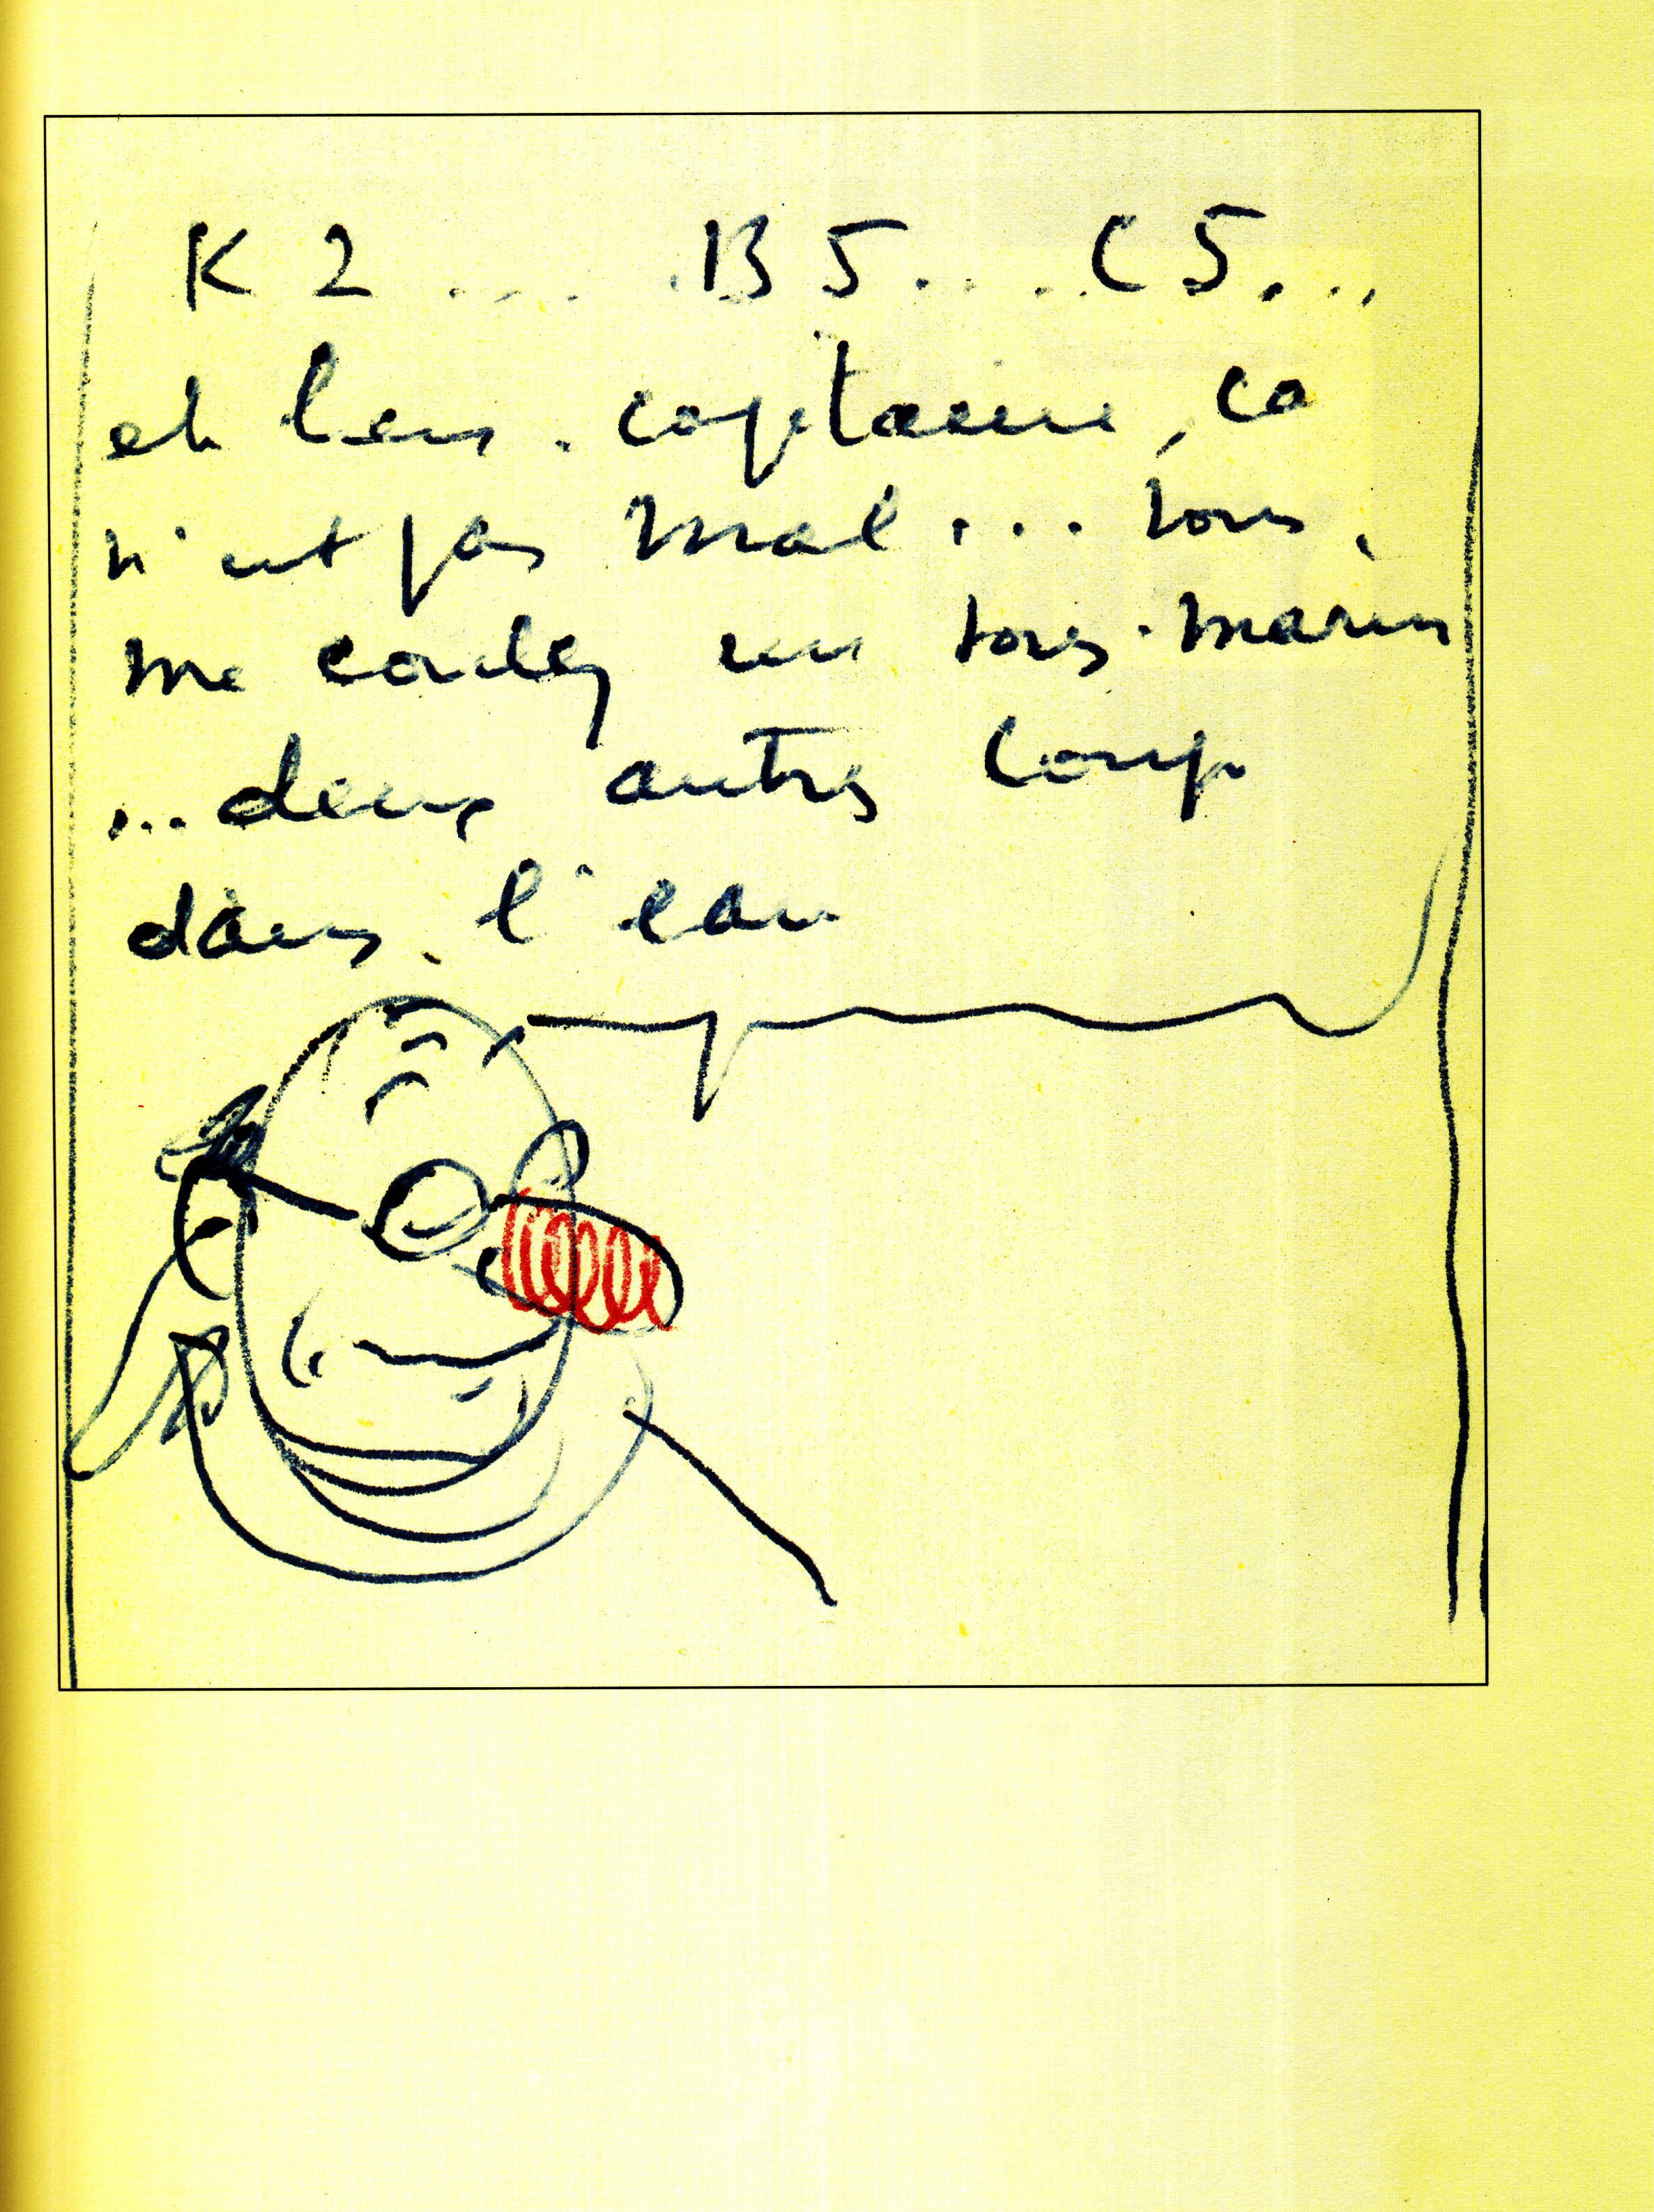 K2.... B5.... C5...
eh bien. capitaine, ca
n'est pas mal... vous
me coulez un sous-marin
...deux autres coups
dans l'eau